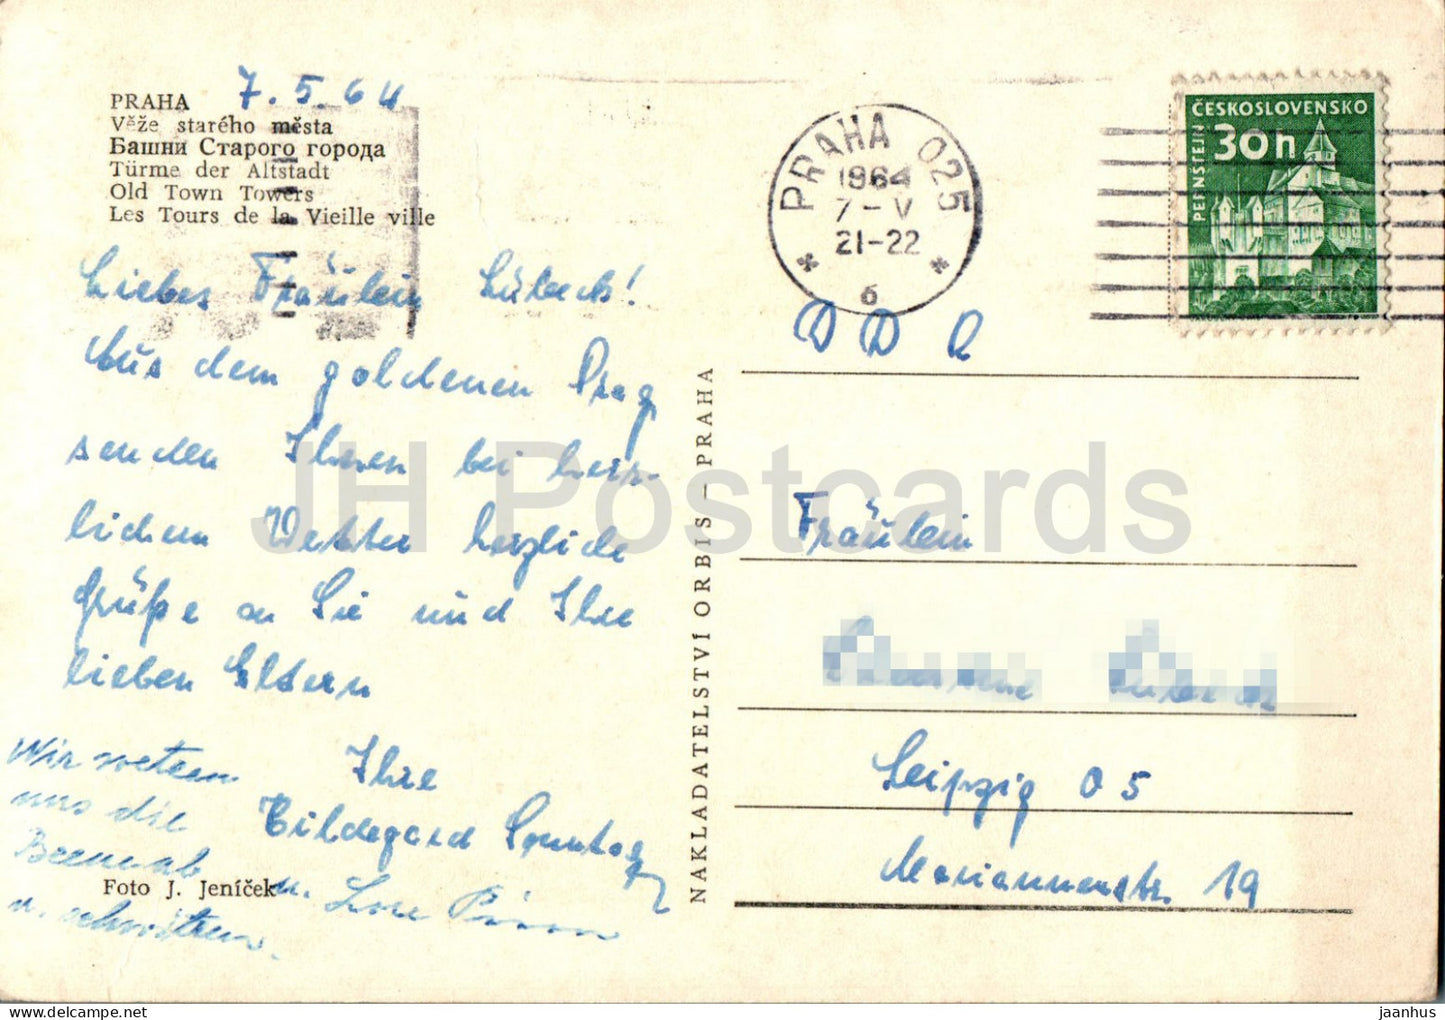 PRAHA 7.5.64
Věže starého města
Башни Старого города
Türme der Altstadt
Old Town Towers
Les Tours de la Vieille ville
PRAHA 025
1964
7-V
21-22
6
ČESKOSLOVENSKO
30h
PERNŠTEJN
Liebes Fräulein Lübeck!
Aus dem goldenen Prag
senden Ihnen bei herr-
lichem Wetter herzliche
Grüße an Sie und Ihre
lieben Eltern
Ihre
Hildegard Sonntag
u. Lore
Wir wetzen
uns die
Beene ab
u. schwitzen.
Foto J. Jeníček
NAKLADATELSTVÍ ORBIS – PRAHA
DDR
Fräulein
Leipzig O5
Mariannenstr. 19
JH Postcards
delcampe.net
jaanhus